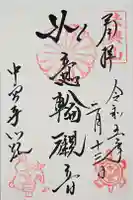 奉拝
令和五年
二月十三日
如意輪觀音
中宮寺